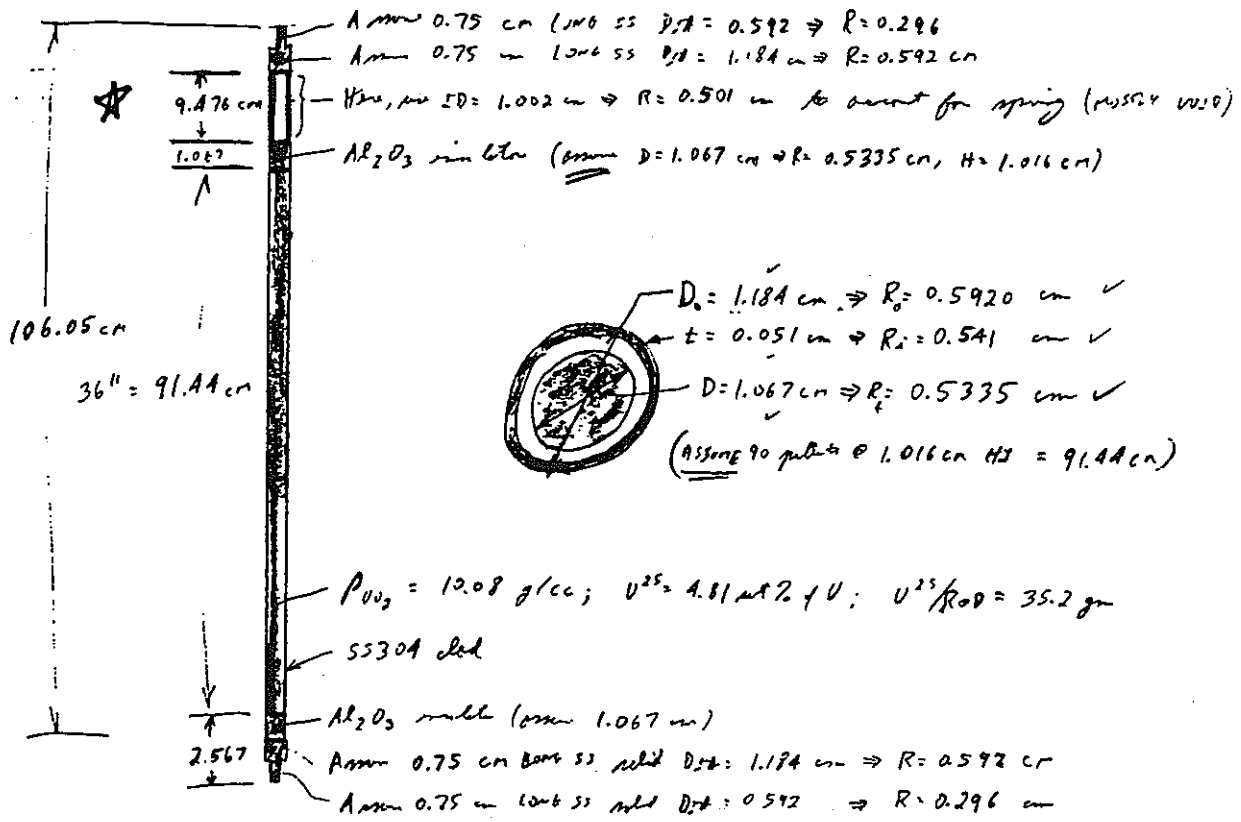 Assume 0.75 cm long SS Dia = 0.592 ⇒ R = 0.296
Assume 0.75 cm long SS Dia = 1.184 cm ⇒ R = 0.592 cm
9.476 cm
Here, use ID = 1.002 cm ⇒ R = 0.501 cm to account for spring (mostly void)
1.067
Al2O3 insulator (assume D = 1.067 cm ⇒ R = 0.5335 cm, H = 1.016 cm)
D₀ = 1.184 cm ⇒ R₀ = 0.5920 cm ✓
106.05 cm
t = 0.051 cm ⇒ Ri = 0.541 cm ✓
36" = 91.44 cm
D = 1.067 cm ⇒ Rf = 0.5335 cm ✓
(Assume 90 pellets @ 1.016 cm Ht = 91.44 cm)
ρUO2 = 10.08 g/cc; U²⁵ = 4.81 wt % of U; U²⁵/ROD = 35.2 gm
SS304 clad
Al2O3 insulator (assume 1.067 cm)
2.567
Assume 0.75 cm long SS solid Dia = 1.184 cm ⇒ R = 0.592 cm
Assume 0.75 cm long SS solid Dia = 0.592 ⇒ R = 0.296 cm